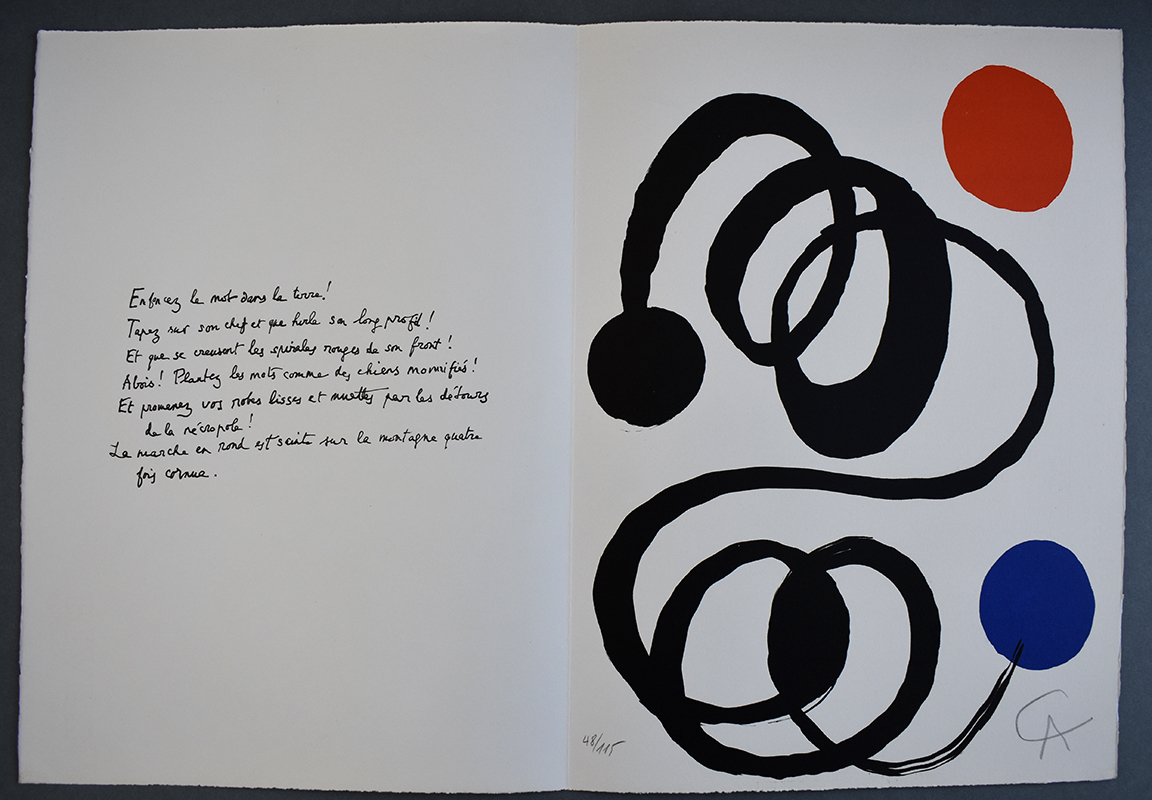 Enfoncez le mot dans la terre!
Tapez sur son chef et que hurle son long profil!
Et que se creusent les spirales rouges de son front!
Abois! Plantez les mots comme des chiens momifiés!
Et promenez vos robes lisses et muettes par les détours
de la nécropole!
La marche en rond est sainte sur la montagne quatre
fois cornue.
48/115
CA